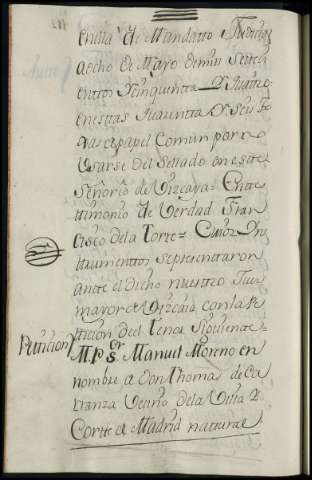 en Villa de Mandatto Judicial
a ocho de Mayo de mil Setez
entos Zinquenta Y quatro
en estas quarenta Y Seis fo
xas de papel Comun por no
Usarse del Sellado en este
Señorio de Vizcaya = En tes
timonio de Verdad Fran
cisco de la Torre = Cuios Ys
trumenttos se presentaron
antte el dicho nuestro Juez
maior de Vizcaia con la Pe
ticion del tenor Siguiente =
Peticion
M. P. Sr. Manuel Moreno en
nombre de Don Thomas de Ca
rranza Vecino de la Villa Y
Corte de Madrid natural